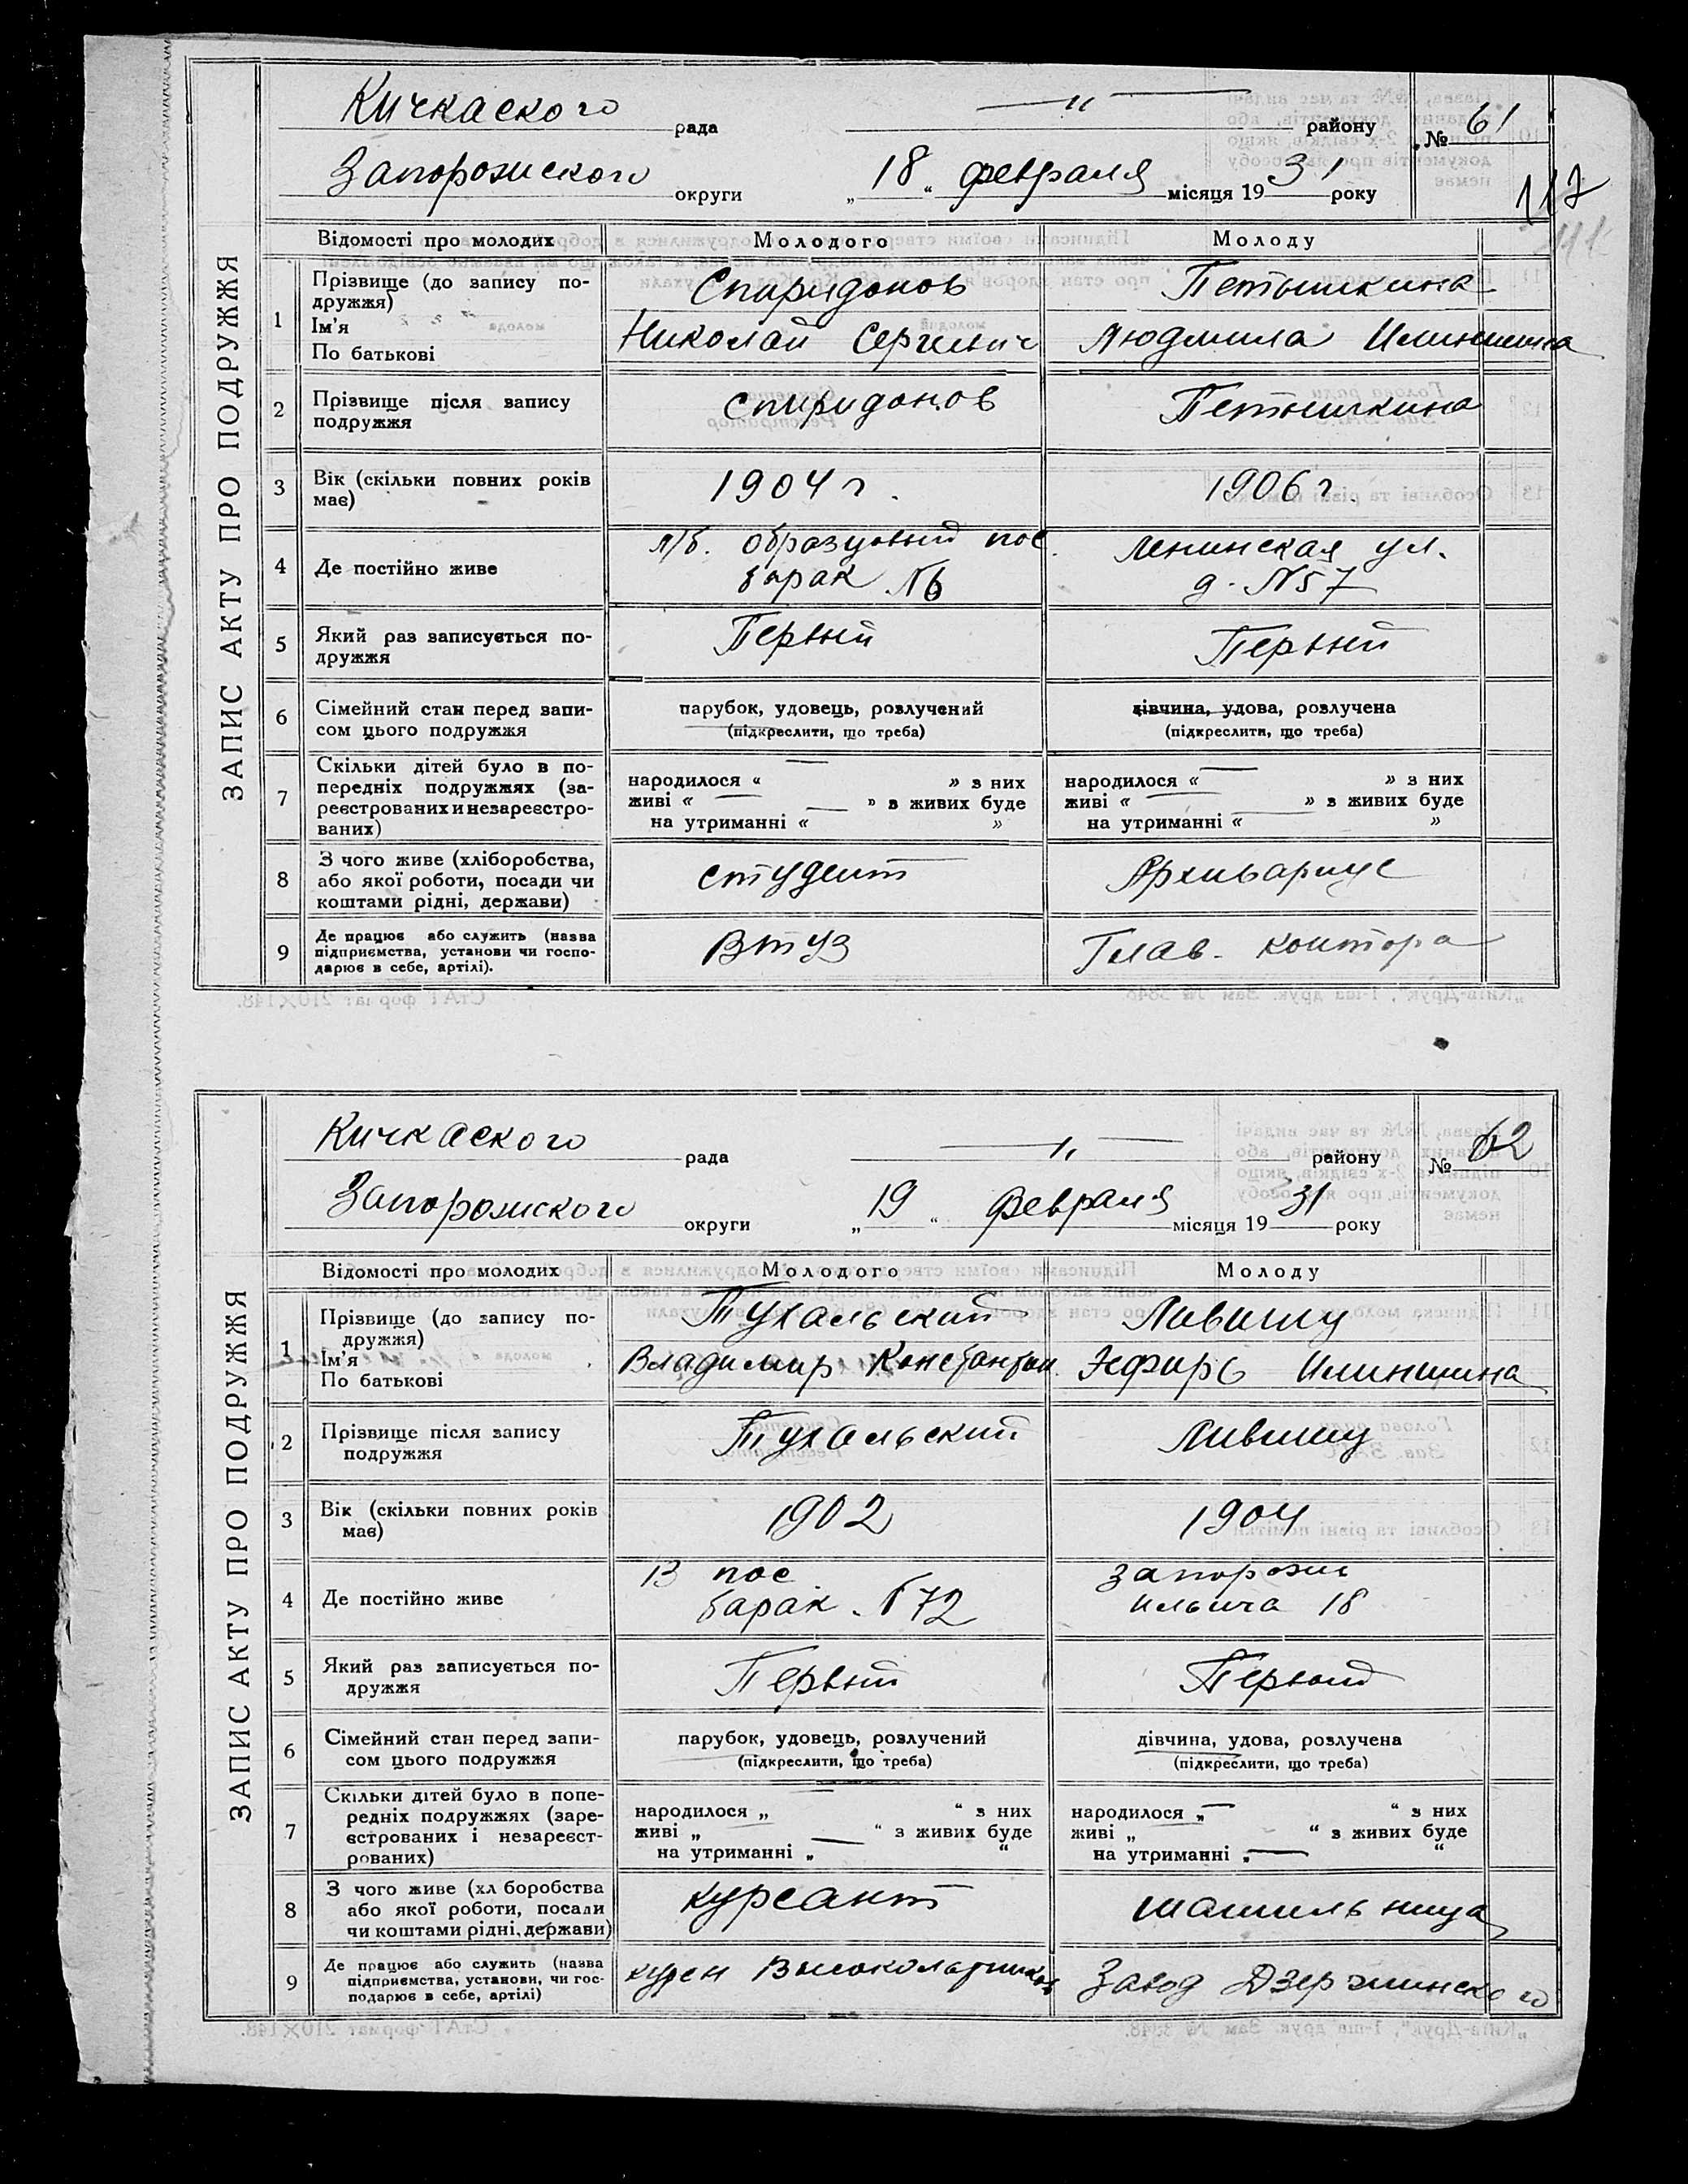 ЗАПИС АКТУ ПРО ПОДРУЖЖЯ
Кичкаского рада —"— району № 61
Запорожского округи „18“ февраля місяця 1931 року
117
Відомості про молодих Молодого Молоду
1 Прізвище (до запису по-
дружжя)
Ім'я
По батькові
Спиридонов
Николай Сергеевич
Петышкина
Людмила
2 Прізвище після запису
подружжя
Спиридонов
Петышкина
3 Вік (скільки повних років
має)
1904 г.
1906 г.
4 Де постійно живе
л/б. образцовый пос.
барак №6
Ленинская ул.
д. №57
5 Який раз записується по-
дружжя
Первый
Первый
6 Сімейний стан перед запи-
сом цього подружжя
парубок, удовець, розлучений
(підкреслити, що треба)
дівчина, удова, розлучена
(підкреслити, що треба)
7 Скільки дітей було в по-
передніх подружжях (за-
реєстрованих и незареєстро-
ваних)
народилося « — » з них
живі « — » з живих буде
на утриманні « — »
народилося « — » з них
живі « — » з живих буде
на утриманні « — »
8 З чого живе (хліборобства,
або якої роботи, посади чи
коштами рідні, держави)
студент
Архивариус
9 Де працює або служить (назва
підприємства, установи чи госпо-
дарює в себе, артілі).
Втуз
Глав. контора
ЗАПИС АКТУ ПРО ПОДРУЖЖЯ
Кичкаского рада —"— району № 62
Запорожского округи „19“ февраля місяця 1931 року
Відомості про молодих Молодого Молоду
1 Прізвище (до запису по-
дружжя)
Ім'я
По батькові
Тухальский
Владимир Константин.
Лившиц
2 Прізвище після запису
подружжя
Тухальский
Лившиц
3 Вік (скільки повних років
має)
1902
1904
4 Де постійно живе
13 пос.
барак. №72
Запорожье
Ильича 18
5 Який раз записується по-
дружжя
Первый
Первый
6 Сімейний стан перед запи-
сом цього подружжя
парубок, удовець, розлучений
(підкреслити, що треба)
дівчина, удова, розлучена
(підкреслити, що треба)
7 Скільки дітей було в попе-
редніх подружжях (заре-
єстрованих і незареєст-
рованих)
народилося „ — “ з них
живі „ — “ з живих буде
на утриманні „ “
народилося „ — “ з них
живі „ “ з живих буде
на утриманні „ — “
8 З чого живе (хл боробства
або якої роботи, посади
чи коштами рідні, держави)
курсант
9 Де працює або служить (назва
підприємства, установи, чи гос-
подарює в себе, артілі)
Завод Дзержинского